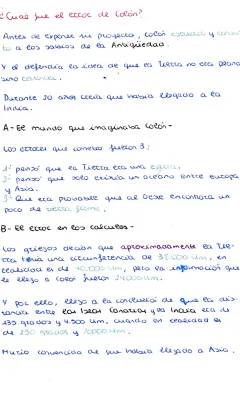 ¿Cual fue el error de Colón?
Antes de exponer su proyecto, Colón estudió y consul-
to a los sabios de la Antigüedad.
Y él defendía la idea de que la Tierra no era plana
sino esférica.
Durante 10 años creía que había llegado a la
India.
A- El mundo que imaginaba Colón-
Los errores que cometió fueron 3:
1- pensó que la Tierra era una
2- pensó que solo existía un océano entre europa
y Asia.
3- Que era probable que al Oeste encontrara un
poco de tierra firme.
B- El error en los cálculos-
Los griegos decían que aproximadamente la Tie-
rra tenía una circunferencia de 39.000 km, en
realidad es de 40.000 km, pero la información que
le llegó a Colón fueron 24.000 km.
Y por ello, llegó a la conclusión de que la dis-
tancia entre las Islas Canarias y la India era de
135 grados y 4.500 km, cuando en realidad es
de 230 grados y km.
Murió convencido de que había llegado a Asia.